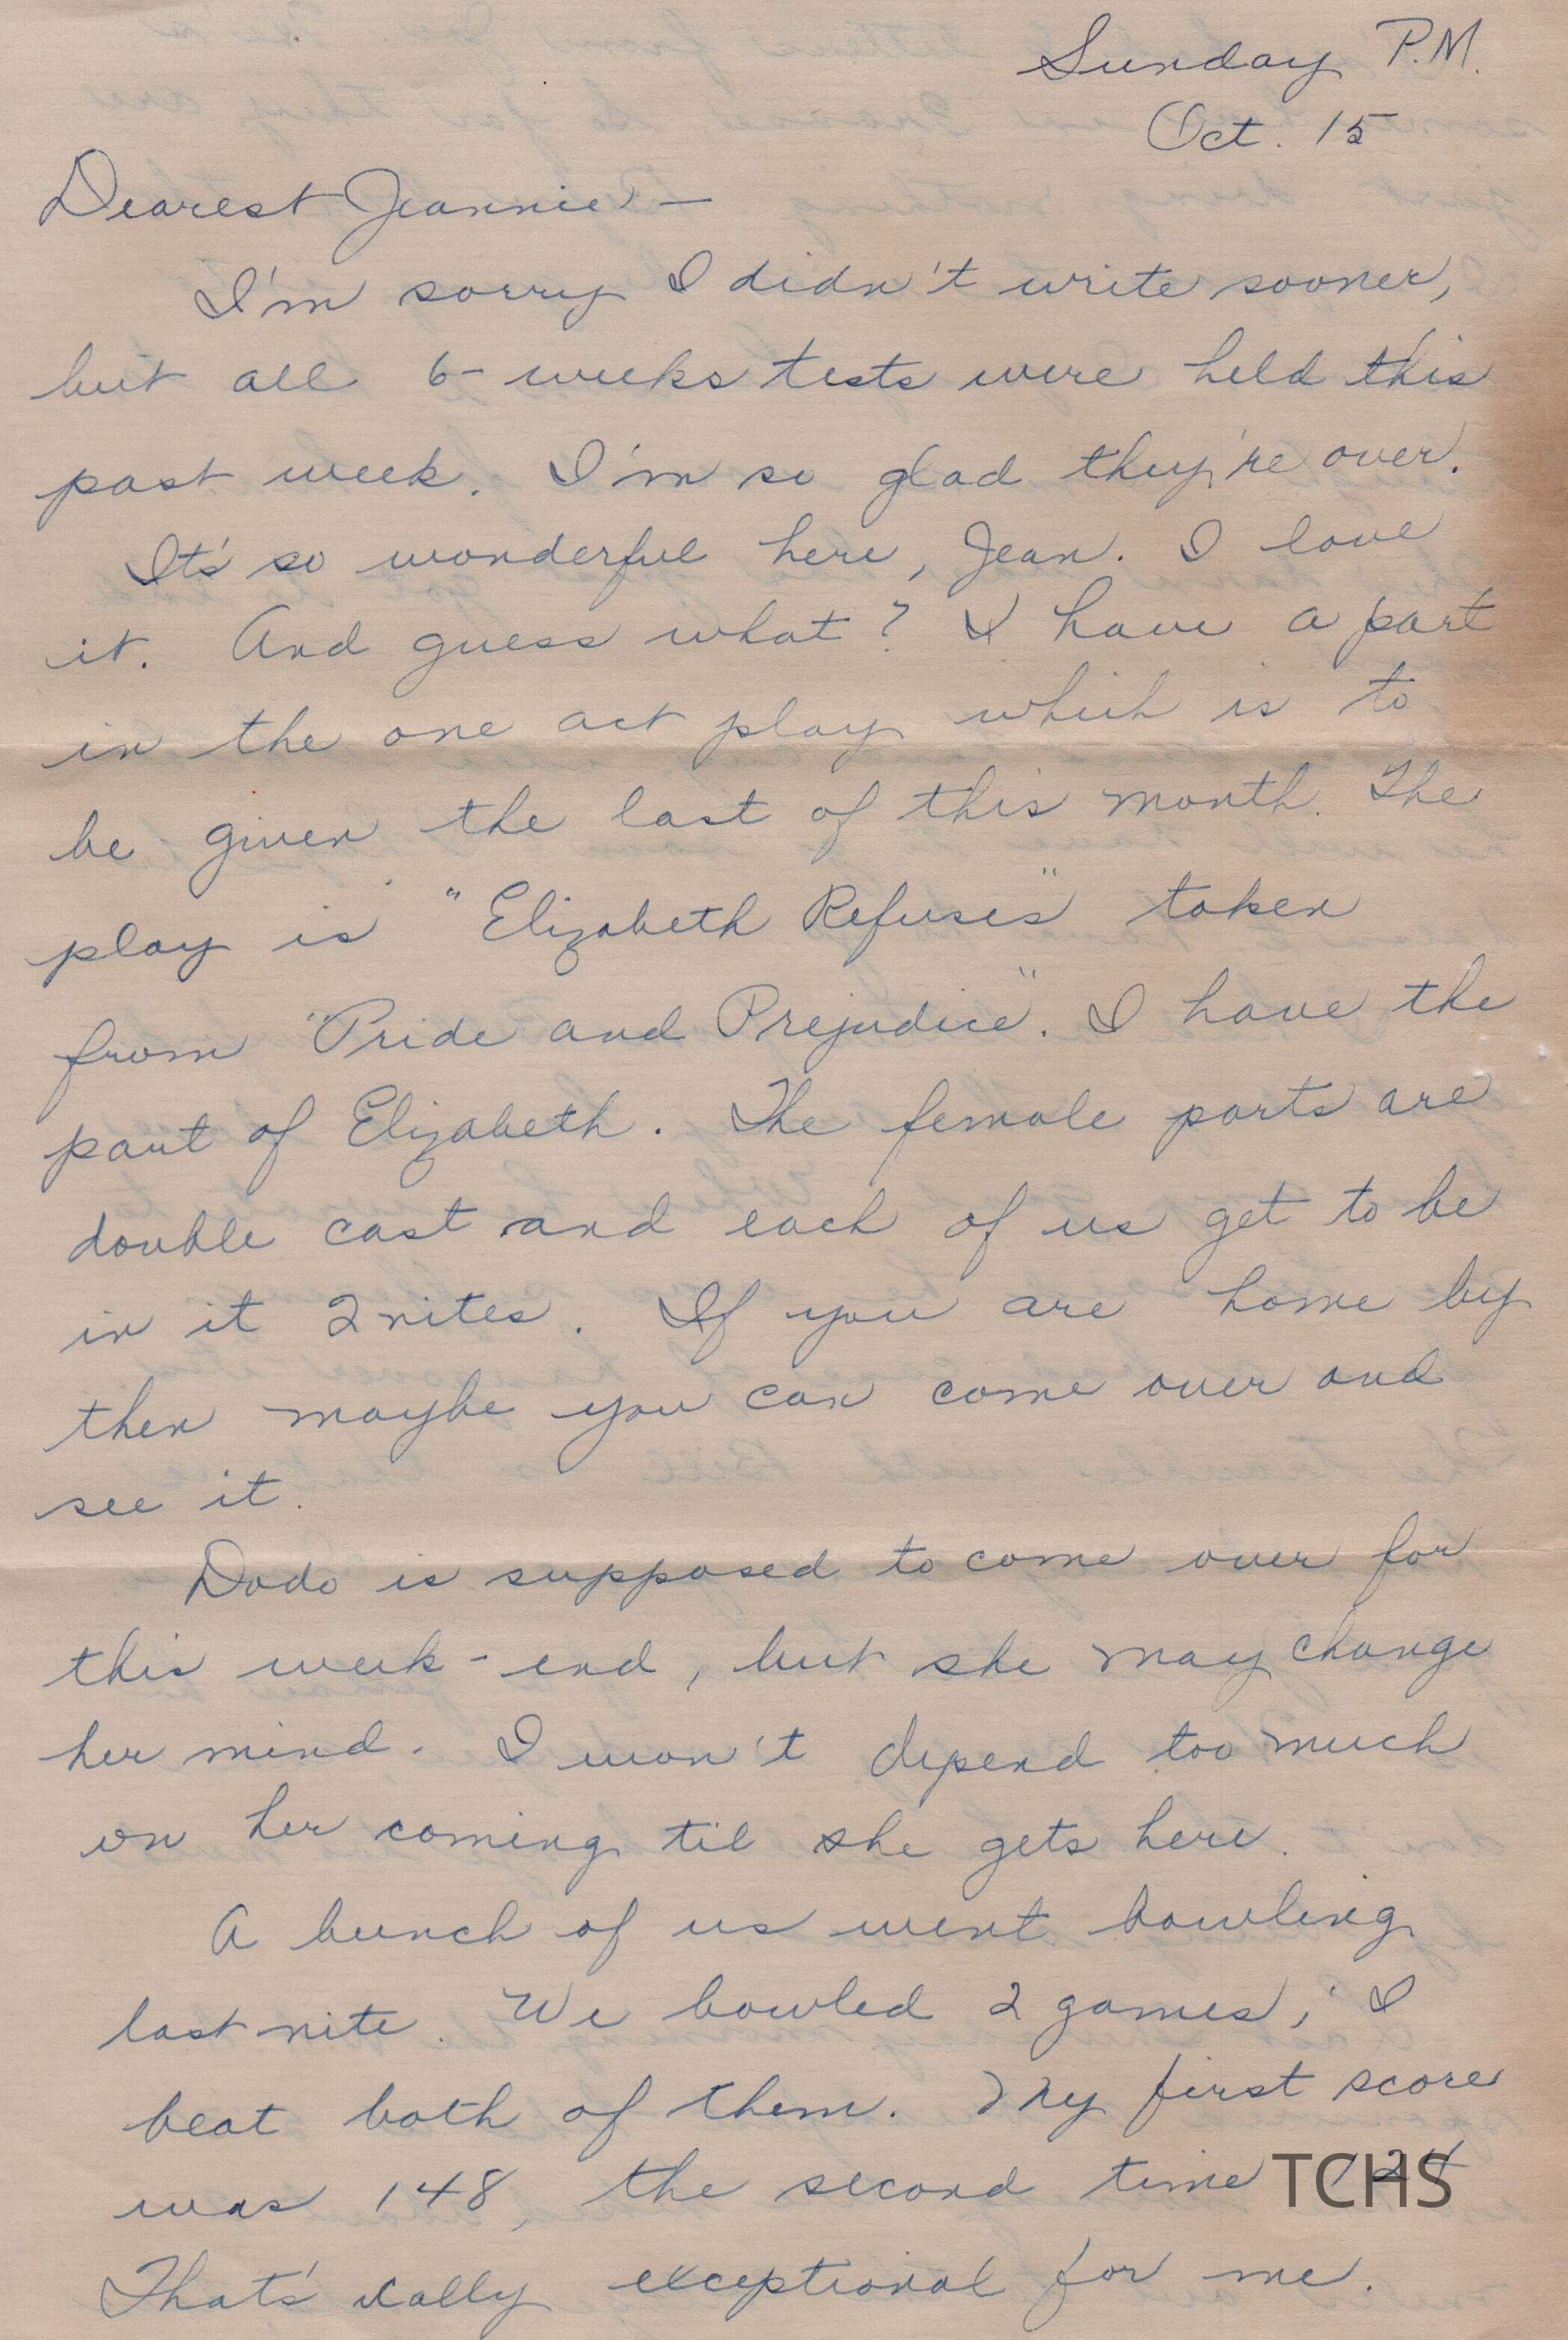 Sunday P.M.
Oct. 15
Dearest Jeannie —
I'm sorry I didn't write sooner,
but all 6-weeks tests were held this
past week. I'm so glad they're over.
It's so wonderful here, Jean. I love
it. And guess what? I have a part
in the one act play which is to
be given the last of this month. The
play is "Elizabeth Refuses" taken
from "Pride and Prejudice". I have the
part of Elizabeth. The female parts are
double cast and each of us get to be
in it 2 nites. If you are home by
then maybe you can come over and
see it.
Dodo is supposed to come over for
this week-end, but she may change
her mind. I won't depend too much
on her coming til she gets here.
A bunch of us went bowling
last nite. We bowled 2 games; I
beat both of them. My first score
was 148, the second time 124
TCHS
That's really exceptional for me.